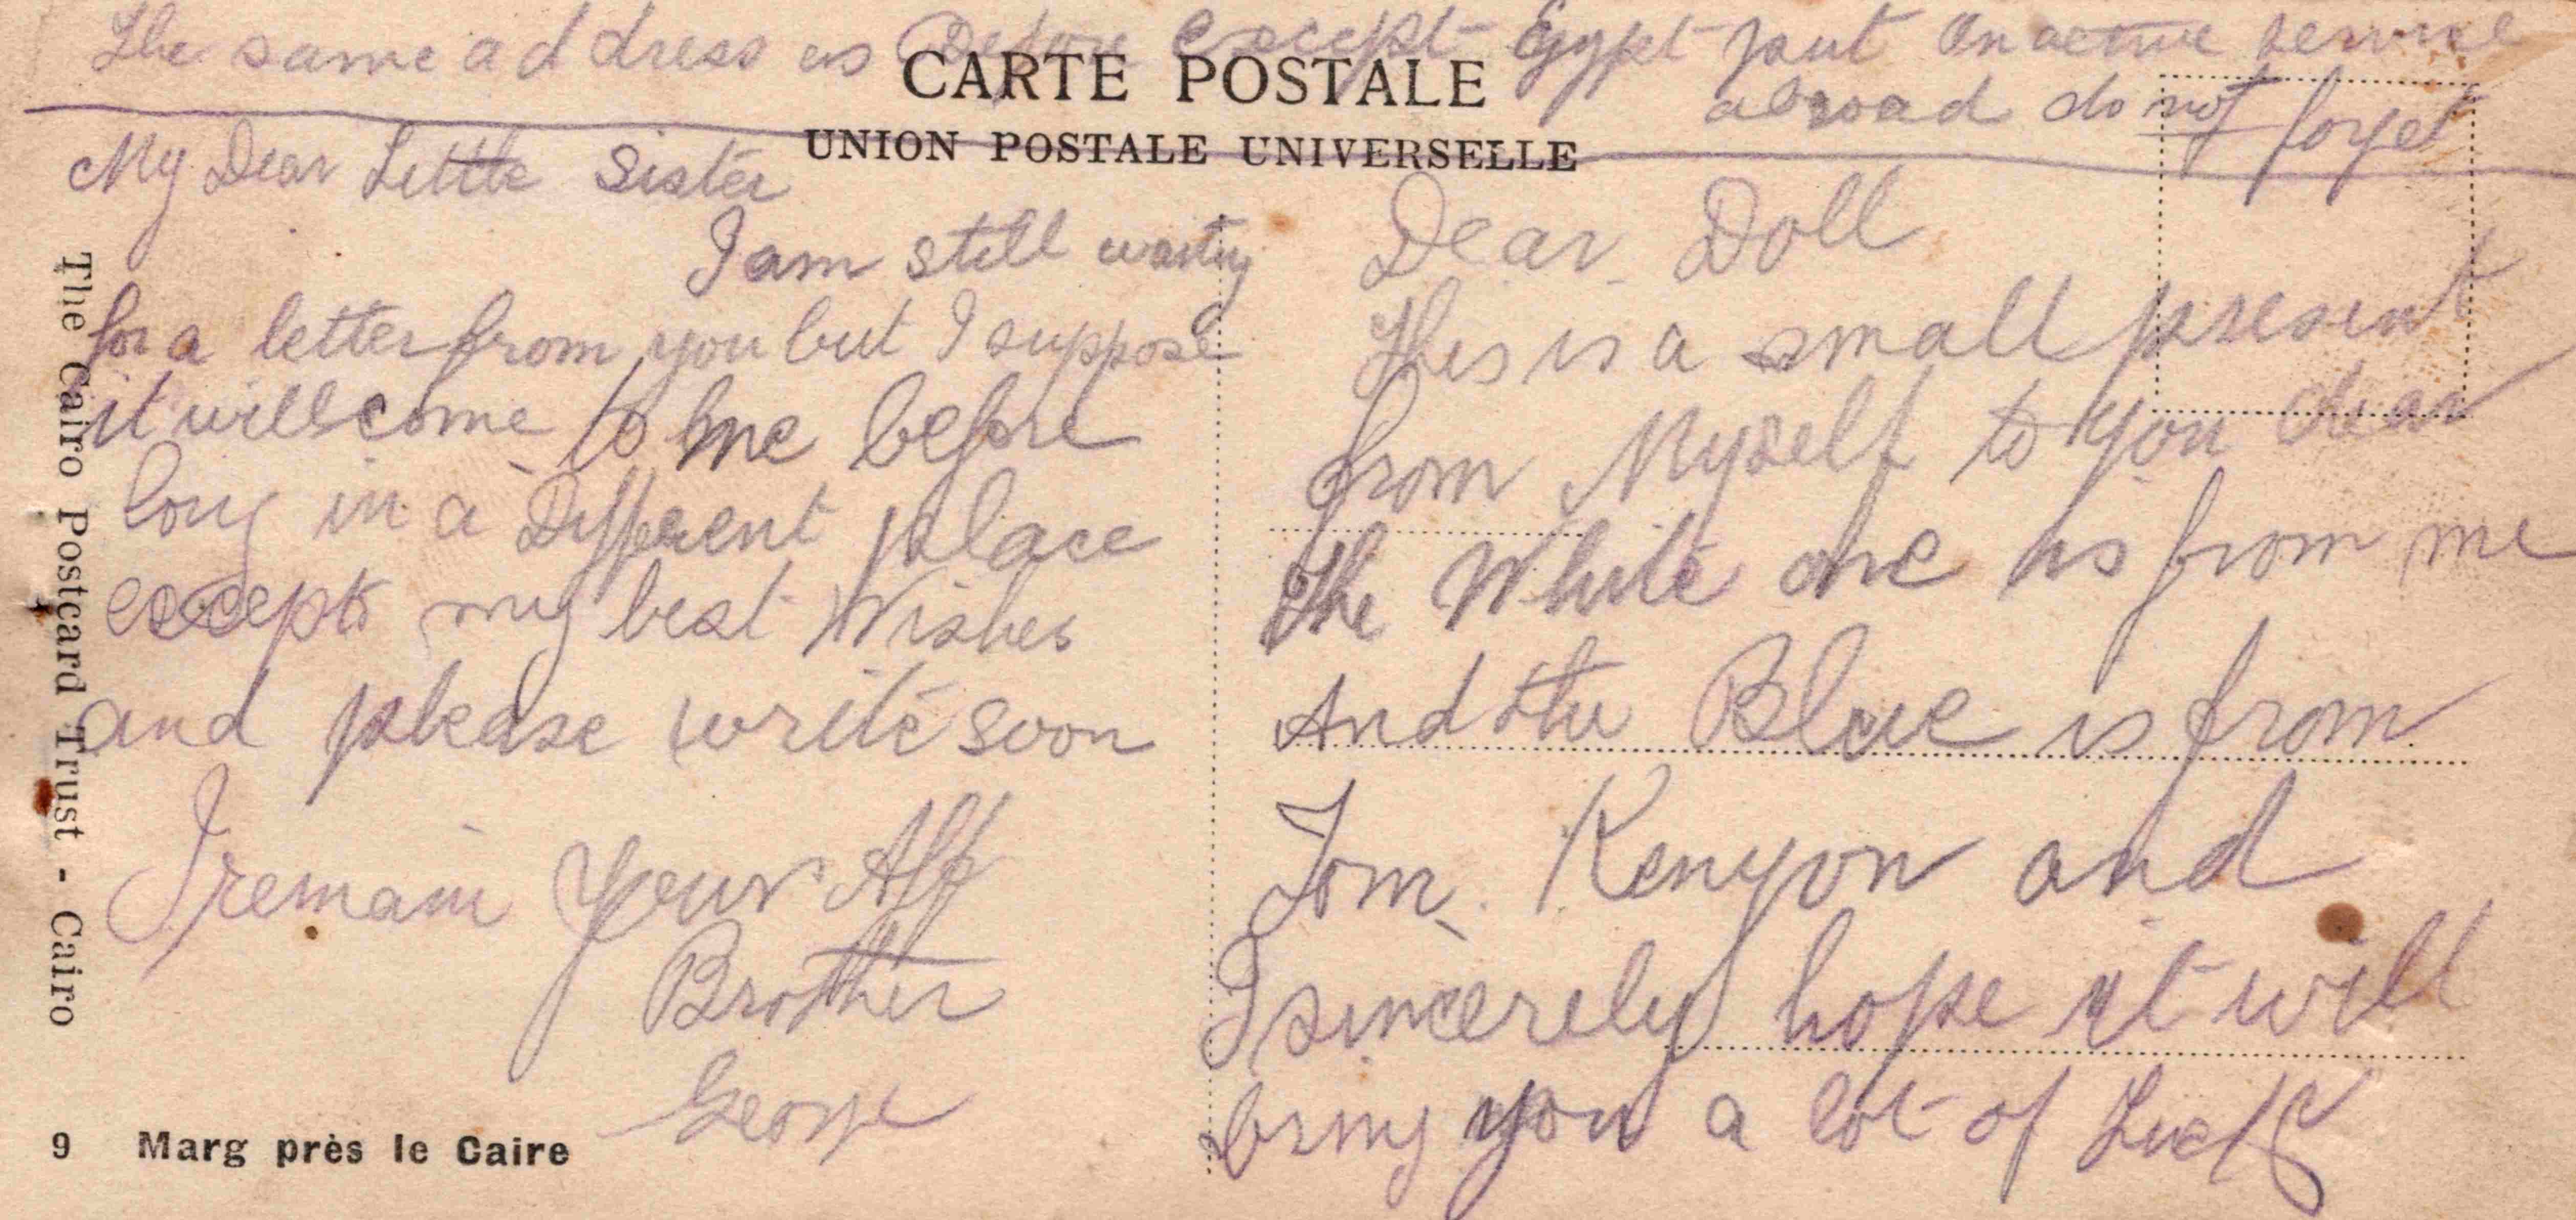 The same address as Before except Egypt put On active service
abroad do not forget
CARTE POSTALE
UNION POSTALE UNIVERSELLE
My Dear Little Sister
I am still waiting
for a letter from you but I suppose
it will come to me before
long in a Different place
except my best Wishes
and please write soon
I remain Your Aff
Brother
George
Dear Doll
This is a small present
from Myself to You dear
the White one is from me
And the Blue is from
Tom Kenyon and
I sincerely hope it will
bring you a lot of Luck
The Cairo Postcard Trust - Cairo
9 Marg près le Caire